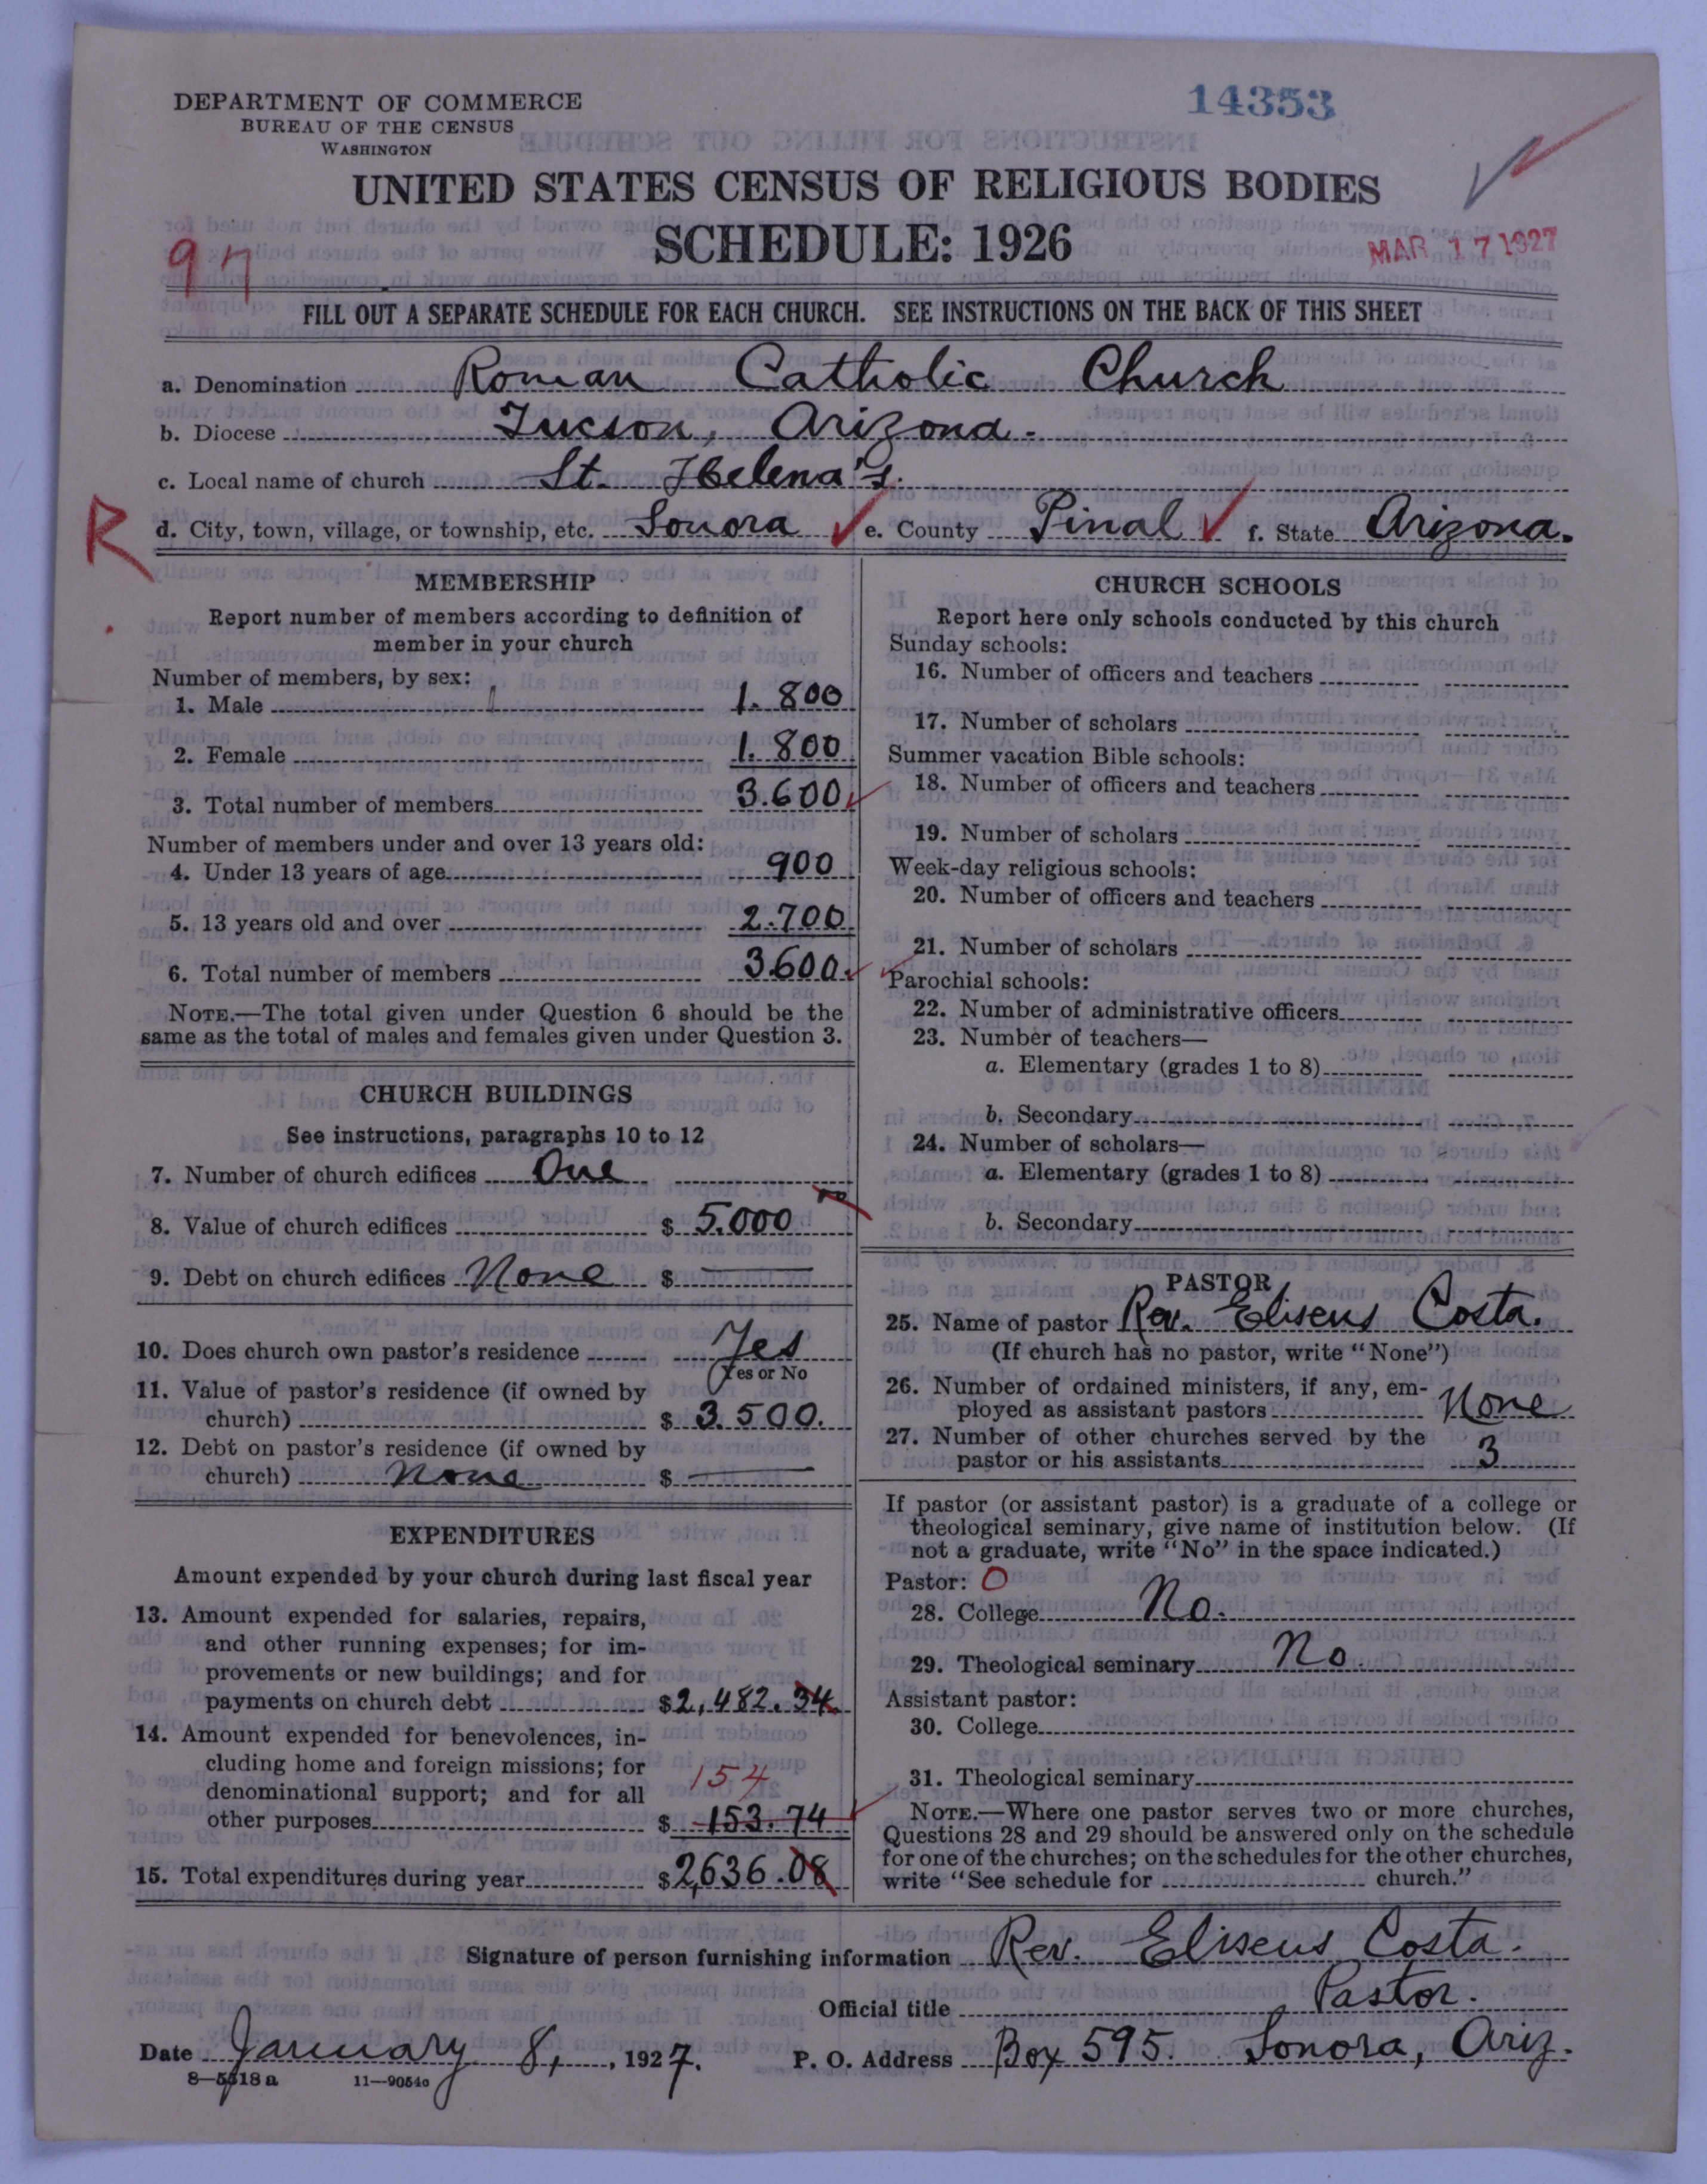 14353
DEPARTMENT OF COMMERCE
BUREAU OF THE CENSUS
WASHINGTON
UNITED STATES CENSUS OF RELIGIOUS BODIES
SCHEDULE: 1926
MAR 17 1927
97
FILL OUT A SEPARATE SCHEDULE FOR EACH CHURCH. SEE INSTRUCTIONS ON THE BACK OF THIS SHEET
a. Denomination Roman Catholic Church
b. Diocese Tucson, Arizona.
c. Local name of church St. Helena's.
R
d. City, town, village, or township, etc. Sonora e. County Pinal f. State Arizona.
MEMBERSHIP
Report number of members according to definition of
member in your church
Number of members, by sex:
1. Male 1.800
2. Female 1.800
3. Total number of members 3.600
Number of members under and over 13 years old:
4. Under 13 years of age 900
5. 13 years old and over 2.700
6. Total number of members 3.600
NOTE.—The total given under Question 6 should be the
same as the total of males and females given under Question 3.
CHURCH BUILDINGS
See instructions, paragraphs 10 to 12
7. Number of church edifices One
8. Value of church edifices $ 5.000
9. Debt on church edifices None $ —
10. Does church own pastor's residence Yes
(Yes or No
11. Value of pastor's residence (if owned by
church) $ 3.500.
12. Debt on pastor's residence (if owned by
church) None $ —
EXPENDITURES
Amount expended by your church during last fiscal year
13. Amount expended for salaries, repairs,
and other running expenses; for im-
provements or new buildings; and for
payments on church debt $2,482.34
14. Amount expended for benevolences, in-
cluding home and foreign missions; for
154
denominational support; and for all
other purposes $ 153.74
15. Total expenditures during year $2,636.08
CHURCH SCHOOLS
Report here only schools conducted by this church
Sunday schools:
16. Number of officers and teachers
17. Number of scholars
Summer vacation Bible schools:
18. Number of officers and teachers
19. Number of scholars
Week-day religious schools:
20. Number of officers and teachers
21. Number of scholars
Parochial schools:
22. Number of administrative officers
23. Number of teachers—
a. Elementary (grades 1 to 8)
b. Secondary
24. Number of scholars—
a. Elementary (grades 1 to 8)
b. Secondary
PASTOR
25. Name of pastor Rev. Eliseus Costa.
(If church has no pastor, write "None")
26. Number of ordained ministers, if any, em-
ployed as assistant pastors None
27. Number of other churches served by the
pastor or his assistants 3
If pastor (or assistant pastor) is a graduate of a college or
theological seminary, give name of institution below. (If
not a graduate, write "No" in the space indicated.)
Pastor: O
28. College No.
29. Theological seminary No.
Assistant pastor:
30. College
31. Theological seminary
NOTE.—Where one pastor serves two or more churches,
Questions 28 and 29 should be answered only on the schedule
for one of the churches; on the schedules for the other churches,
write "See schedule for church."
Signature of person furnishing information Rev. Eliseus Costa.
Official title Pastor.
Date January 8, 1927. P. O. Address Box 595. Sonora, Ariz.
8—5318a 11—9054c